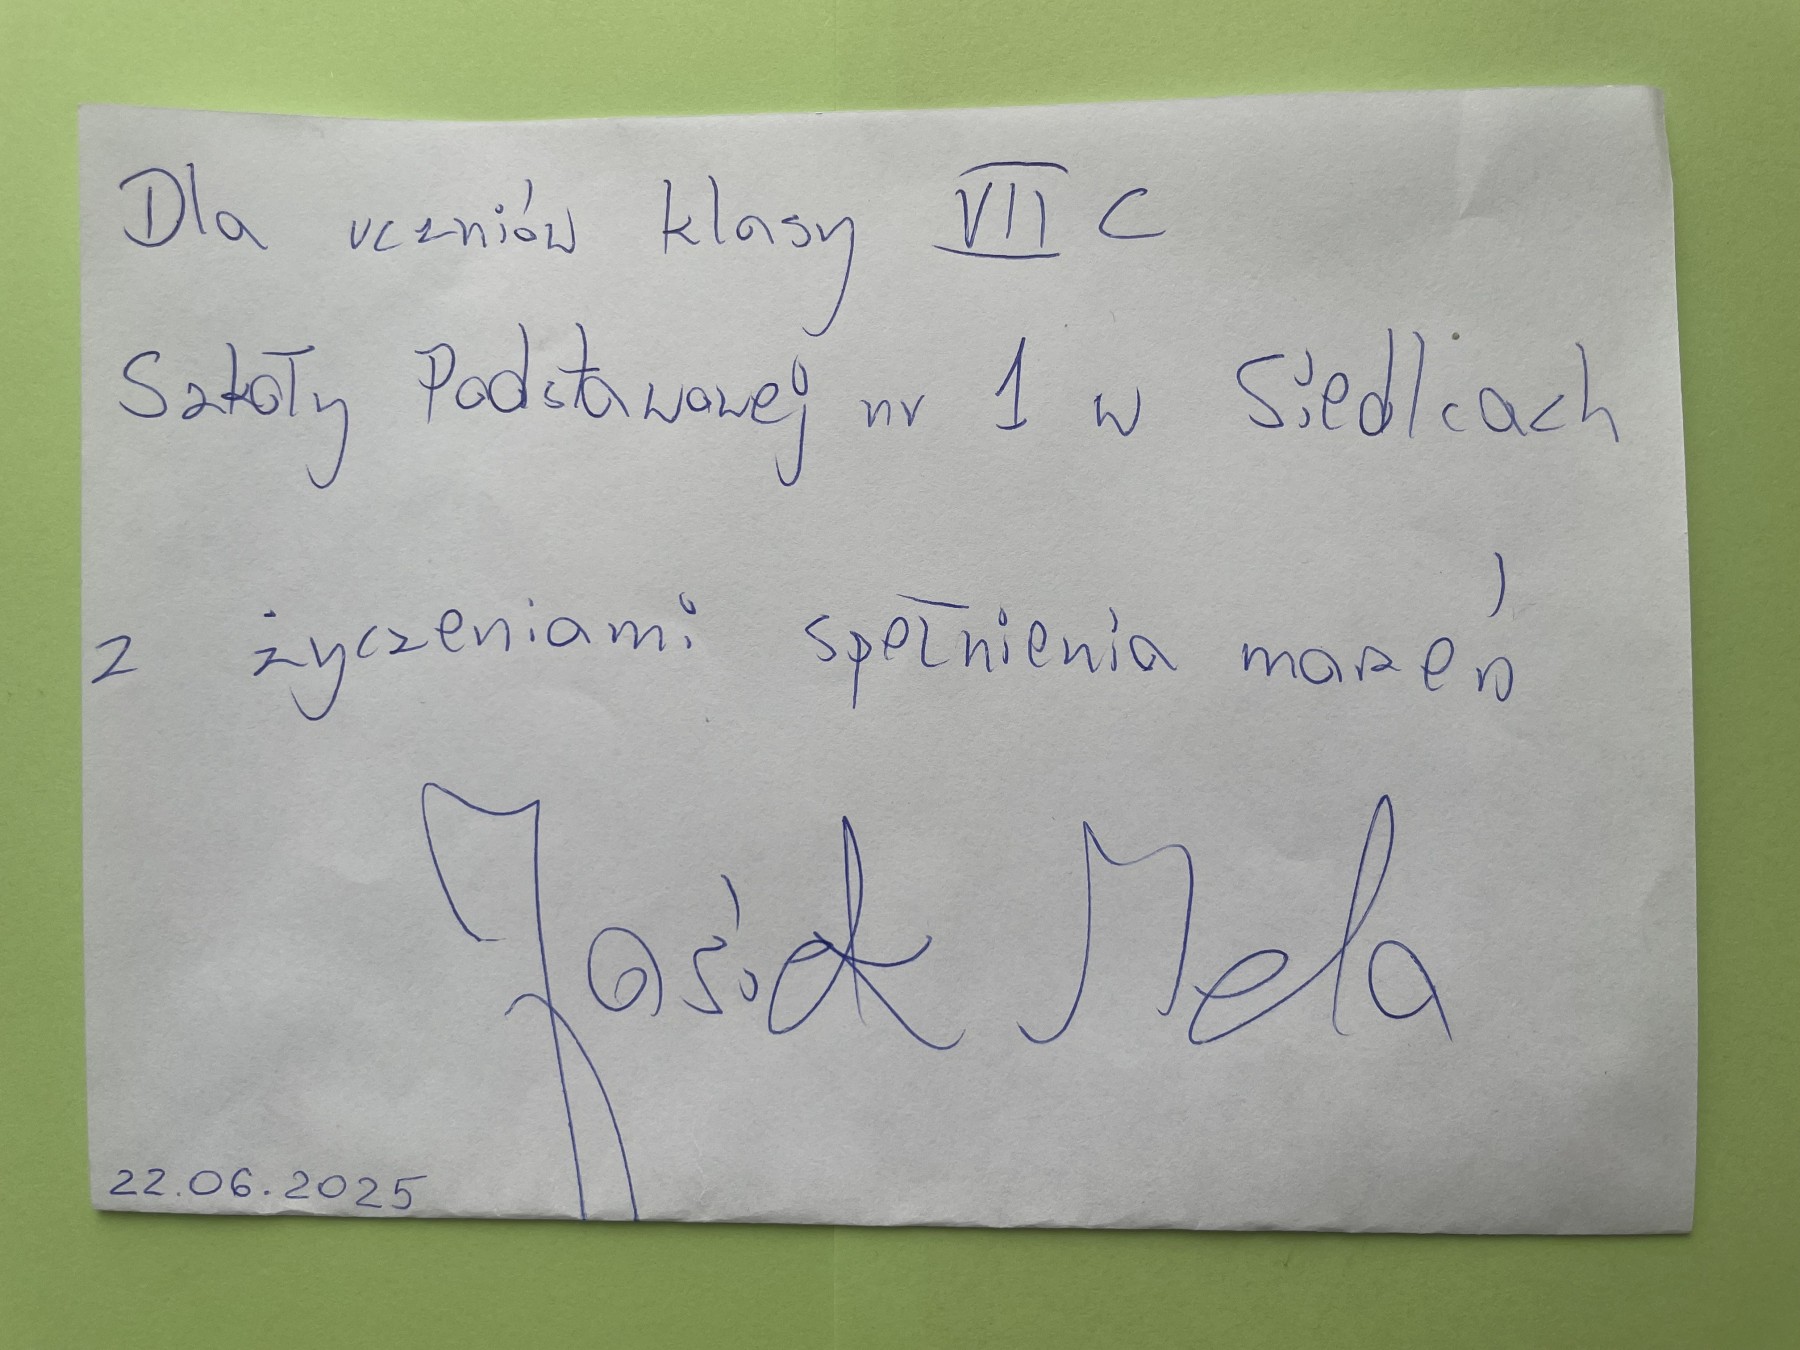 Dla uczniów klasy VII C
Szkoły Podstawowej nr 1 w Siedlcach
z życzeniami spełnienia marzeń
Jasiek Mela
22.06.2025